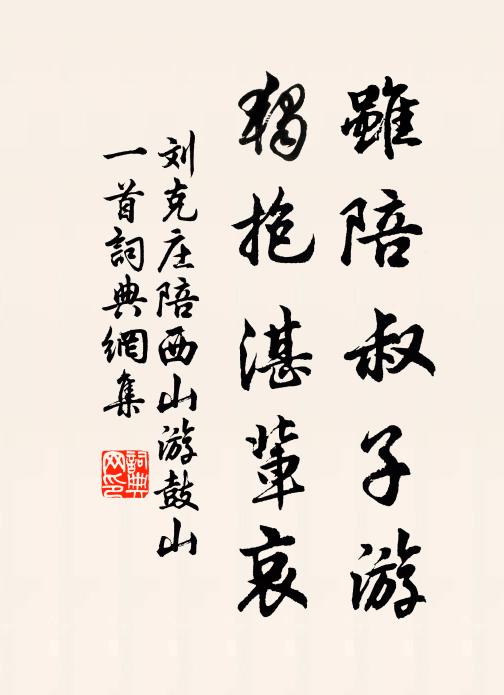 雖陪叔子游
獨抱湛輩哀
刘克庄陪西山游鼓山
一首詞典網集
詞典
网印